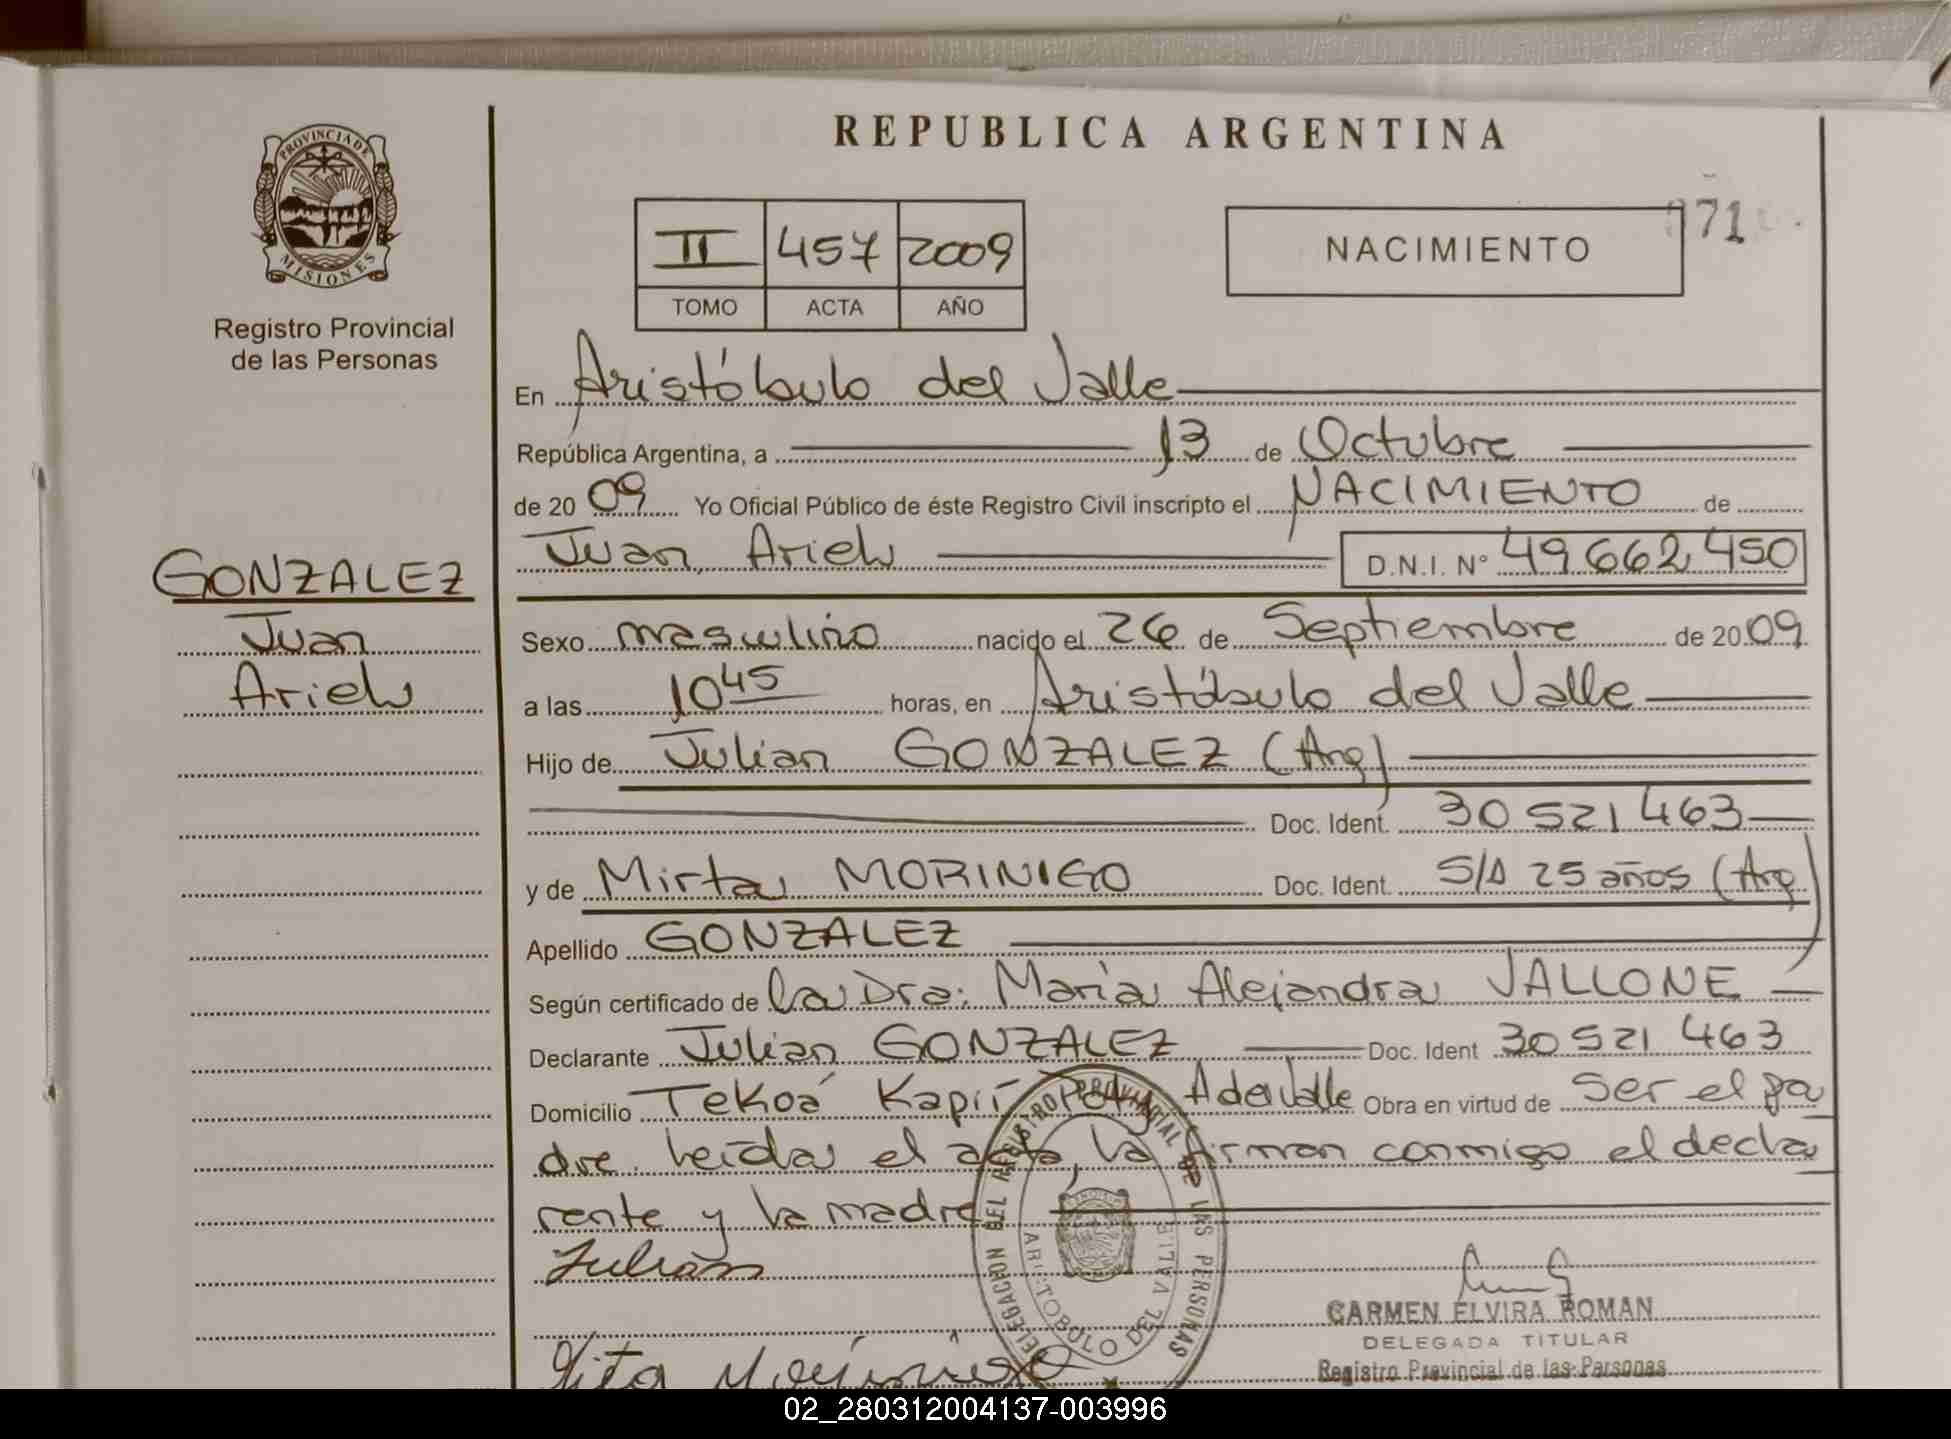 REPUBLICA ARGENTINA
PROVINCIA DE
MISIONES
Registro Provincial
de las Personas
II 457 2009
TOMO ACTA AÑO
NACIMIENTO
71
En Aristóbulo del Valle
República Argentina, a 13 de Octubre
de 2009 Yo Oficial Público de éste Registro Civil inscripto el NACIMIENTO de
Juan Ariel D.N.I. Nº 49 662 450
GONZALEZ
Juan
Ariel
Sexo masculino nacido el 26 de Septiembre de 2009
a las 10 45 horas, en Aristóbulo del Valle
Hijo de Julian GONZALEZ (Arg)
Doc. Ident. 30 521 463
y de Mirta MORINIGO Doc. Ident. S/D 25 años (Arg)
Apellido GONZALEZ
Según certificado de la Dra. Maria Alejandra VALLONE
Declarante Julian GONZALEZ Doc. Ident 30 521 463
Domicilio Tekoá Kapií A del Valle Obra en virtud de ser el pa
dre. leída el acta, la firman conmigo el decla
rante y la madre
Julian
DELEGACION DEL REGISTRO PROVINCIAL DE LAS PERSONAS
ARISTOBULO DEL VALLE
CARMEN ELVIRA ROMAN
DELEGADA TITULAR
Registro Provincial de las Personas
02_280312004137-003996